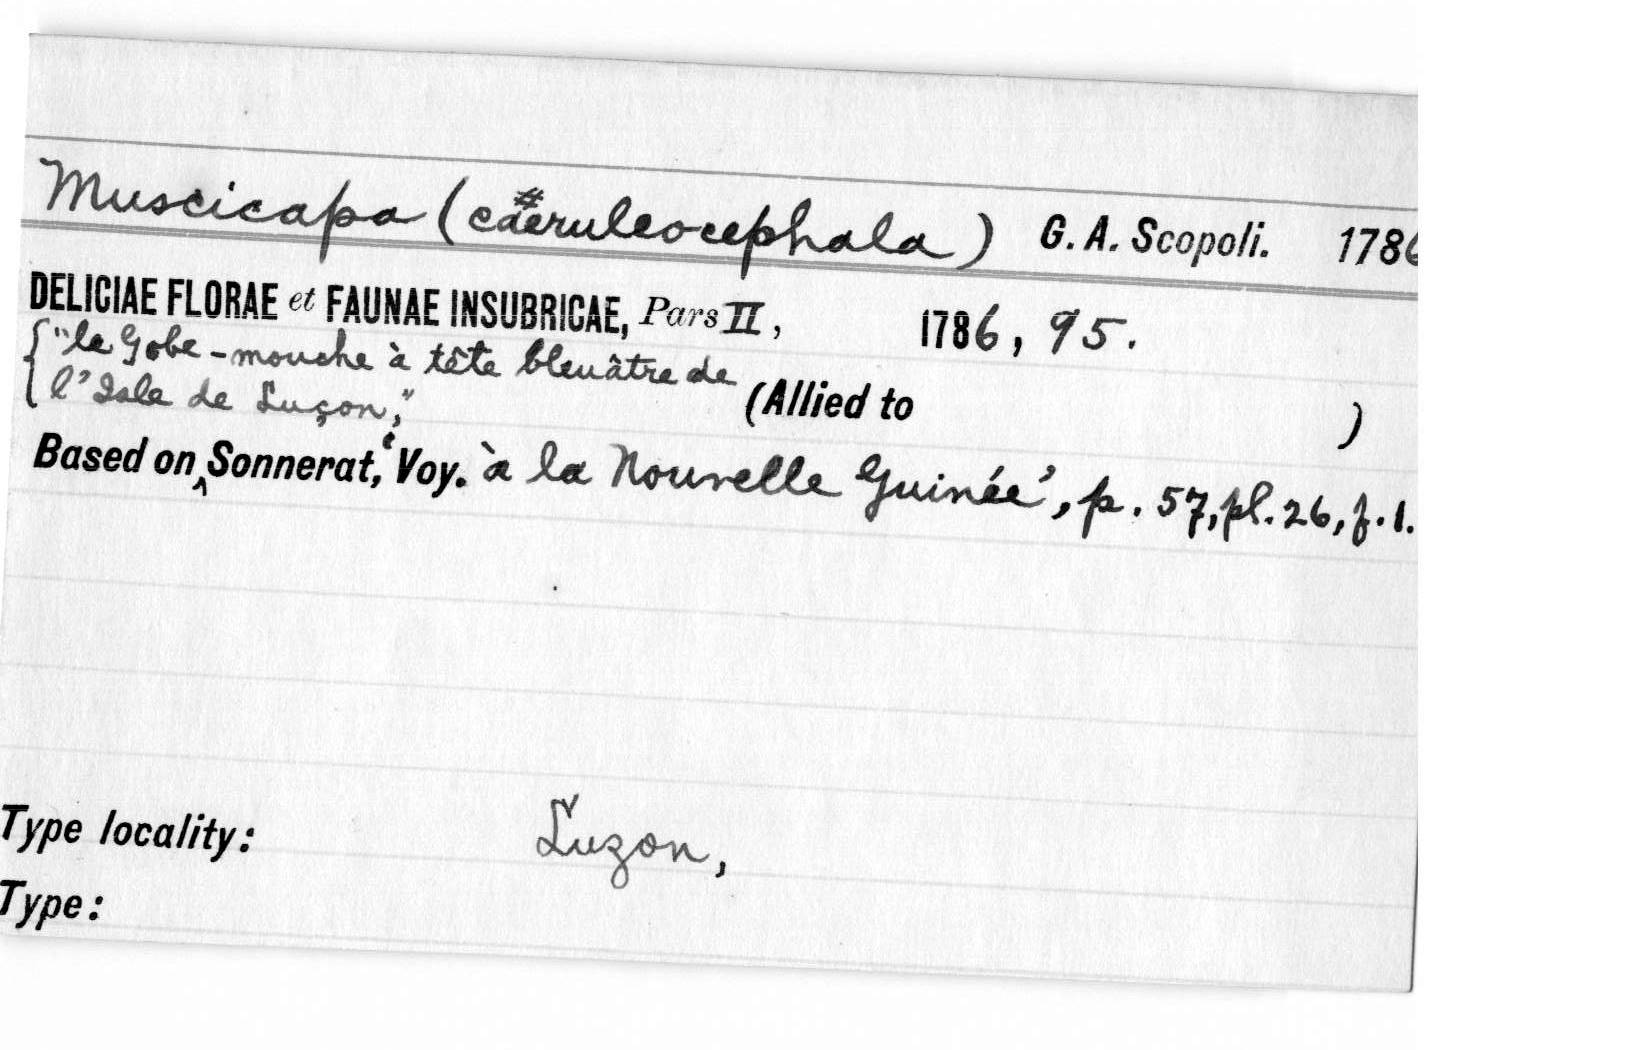 Muscicapa (caeruleocephala) G. A. Scopoli. 1786
#
DELICIAE FLORAE et FAUNAE INSUBRICAE, Pars II, 1786, 95.
{"le Gobe-mouche à tête bleuâtre de
l'Isle de Luçon," (Allied to )
Based on ^ Sonnerat, 'Voy. à la Nouvelle Guinée', p. 57, pl. 26, f. 1.
Type locality: Luzon,
Type: